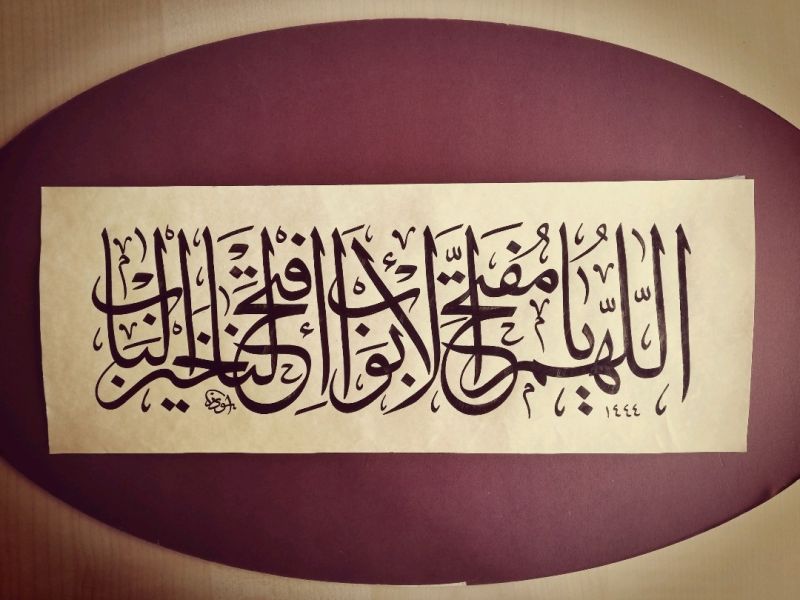 اللهم يا مفتح الابواب افتح لنا خير الباب
١٤٤٤